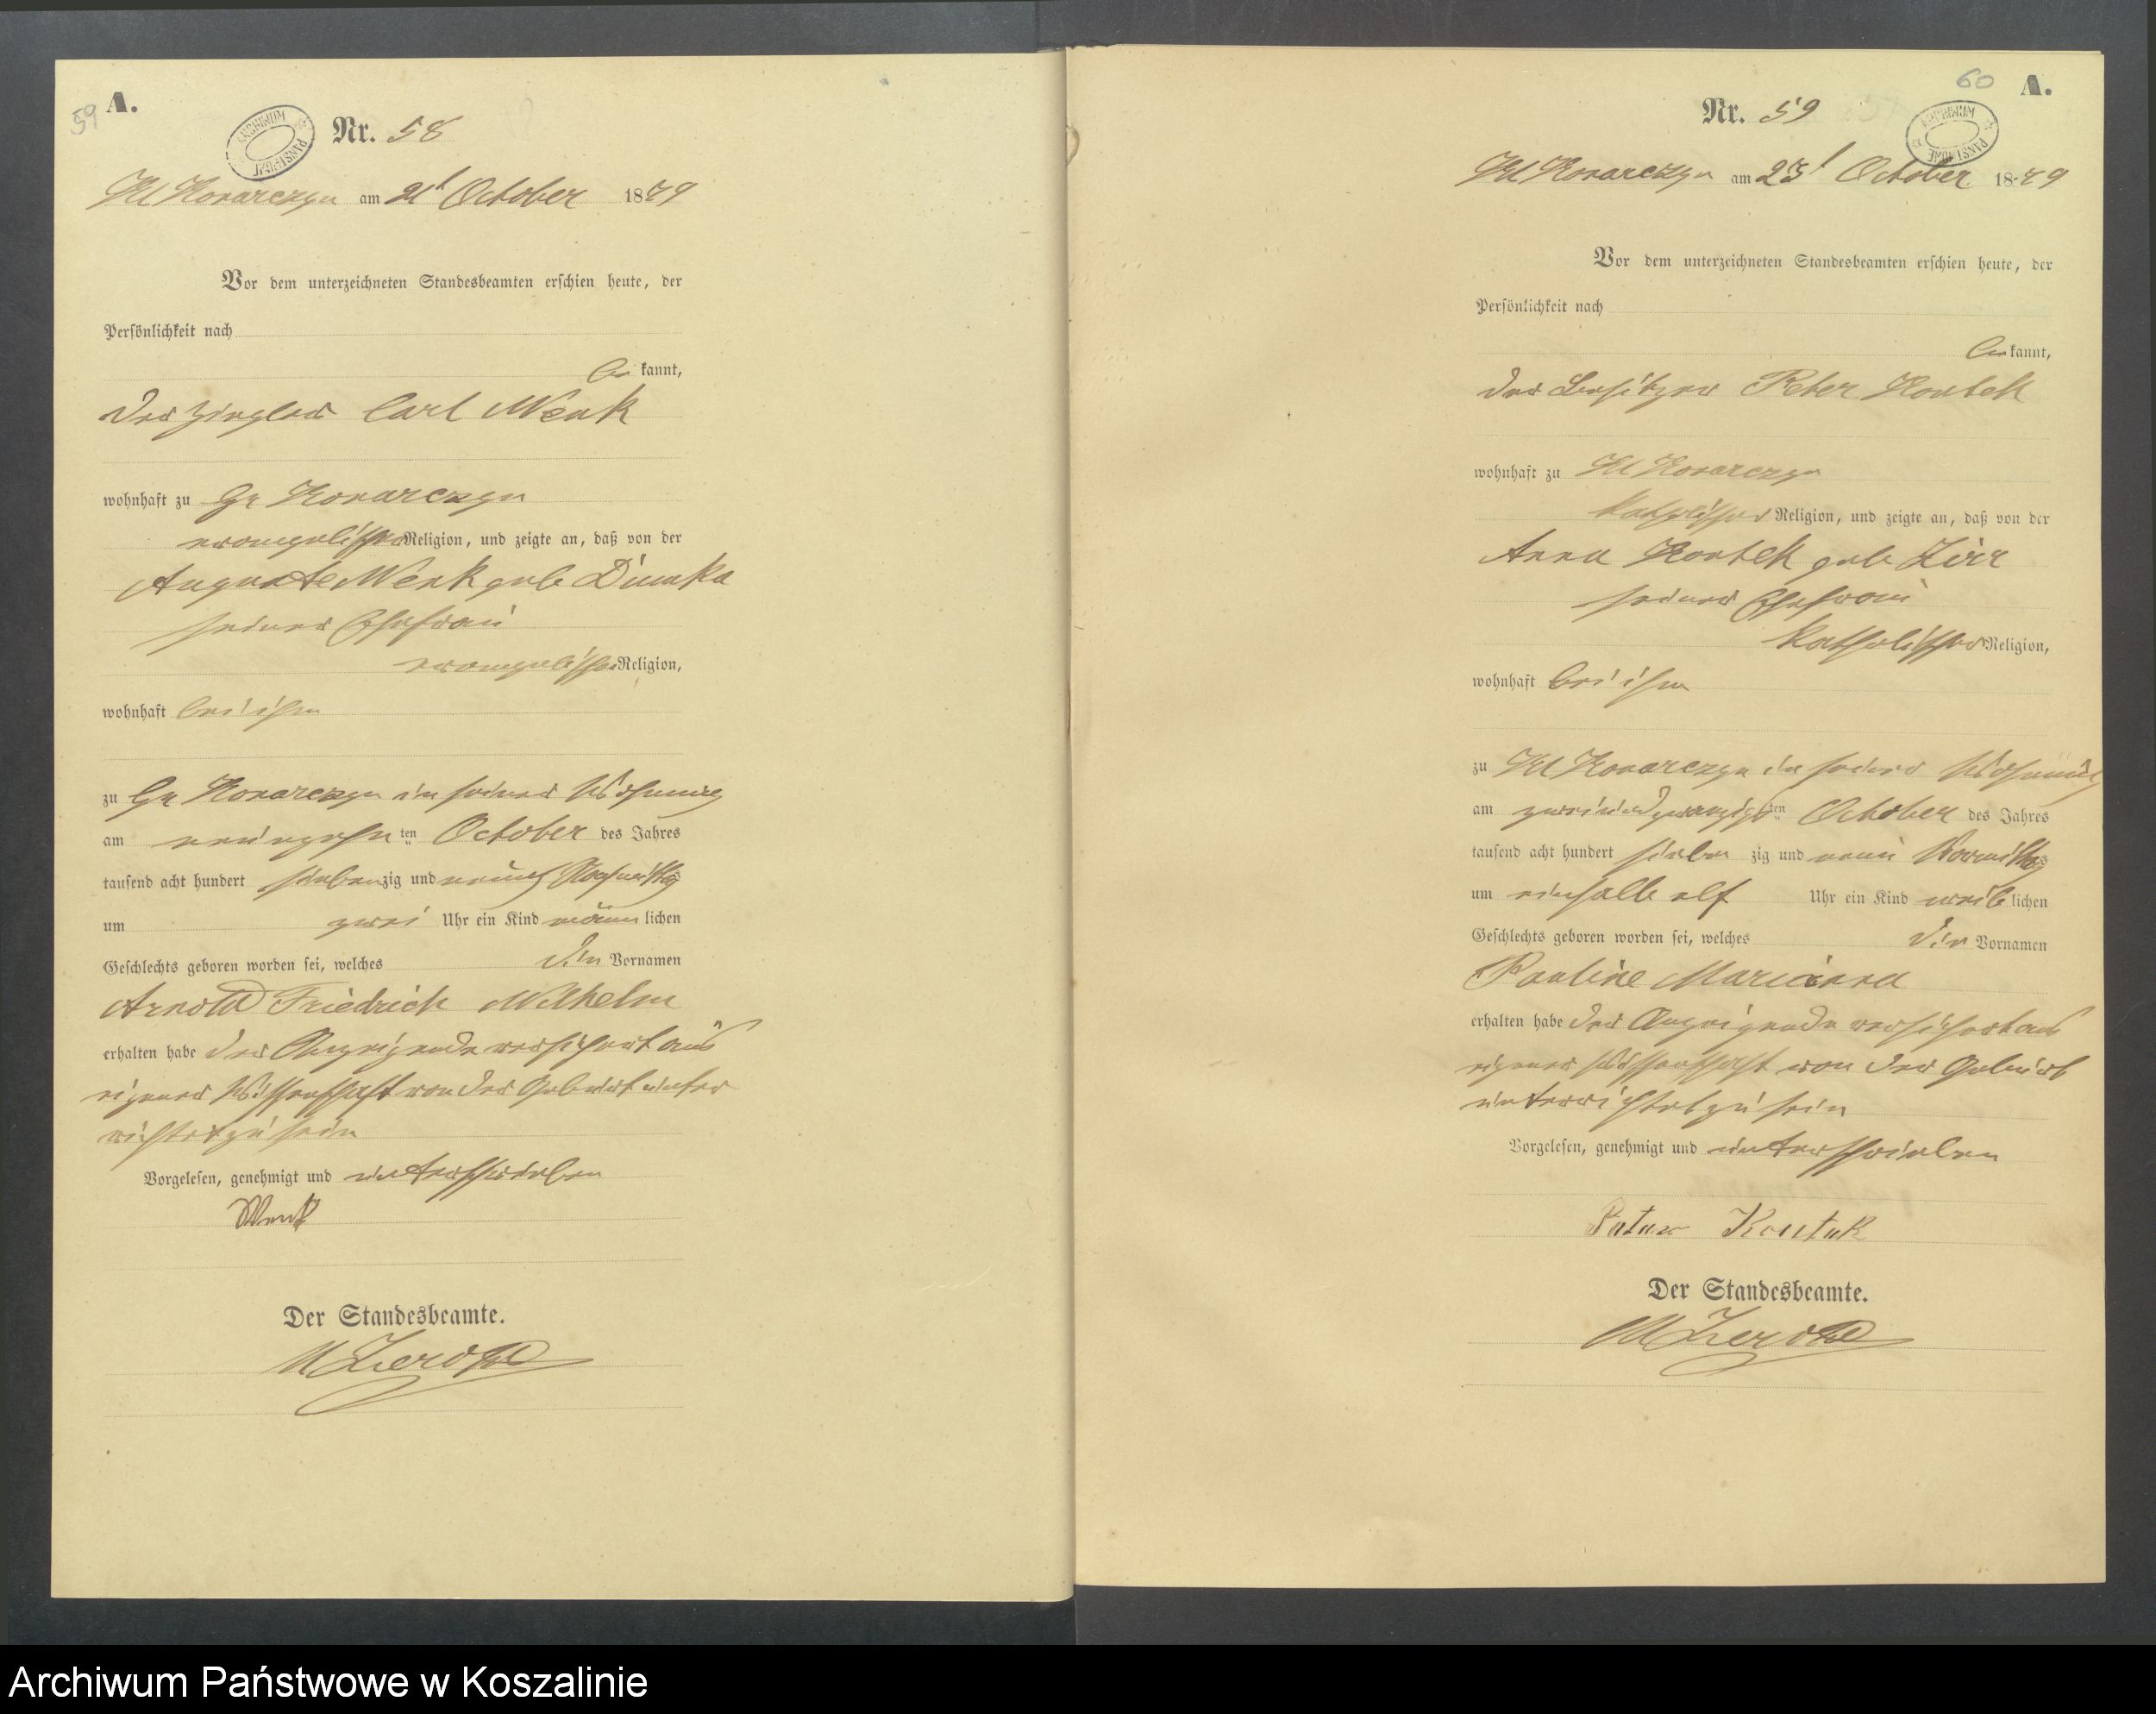 59 A.
ARCHIWUM PAŃSTWOWE
Nr. 58
Kl Konarczyn am 21t October 1879
Vor dem unterzeichneten Standesbeamten erschien heute, der
Persönlichkeit nach
be kannt,
der Ziegler Carl Wenk
wohnhaft zu Gr Konarczyn
evangelischer Religion, und zeigte an, daß von der
Auguste Wenk geb
seiner Ehefrau
evangelischer Religion,
wohnhaft bei ihm
zu Gr Konarczyn in seiner Wohnung
am neunzehnten October des Jahres
tausend acht hundert siebenzig und neun Nachmittags
um zwei Uhr ein Kind männlichen
Geschlechts geboren worden sei, welches die Vornamen
Arnold Friedrich Wilhelm
erhalten habe der Anzeigende versichert aus
eigener Wissenschaft von der Geburt unter
richtet zu sein
Vorgelesen, genehmigt und unterschrieben
Wenk
Der Standesbeamte.
60 A.
Nr. 59
ARCHIWUM PAŃSTWOWE
Kl Konarczyn am 23t October 1879
Vor dem unterzeichneten Standesbeamten erschien heute, der
Persönlichkeit nach
be kannt,
der Besitzer Peter Kontek
wohnhaft zu Kl Konarczyn
katholischer Religion, und zeigte an, daß von der
Anna Kontek geb
seiner Ehefrau
katholischer Religion,
wohnhaft bei ihm
zu Kl Konarczyn in seiner Wohnung
am zweiundzwanzigsten October des Jahres
tausend acht hundert sieben zig und neun Vormittags
um einhalb elf Uhr ein Kind weiblichen
Geschlechts geboren worden sei, welches die Vornamen
Pauline Marianna
erhalten habe der Anzeigende versichert aus
eigener Wissenschaft von der Geburt
unterrichtet zu sein
Vorgelesen, genehmigt und unterschrieben
Peter Kontek
Der Standesbeamte.
Archiwum Państwowe w Koszalinie